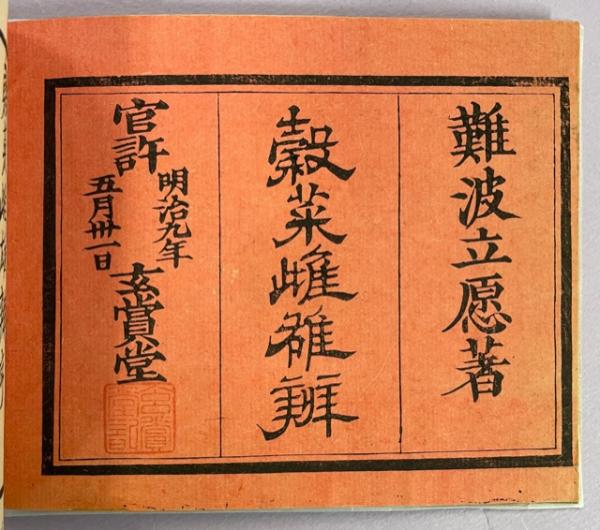 難波立愿著
穀菜雌雄辨
官許
明治九年
五月卅一日
玄賞堂